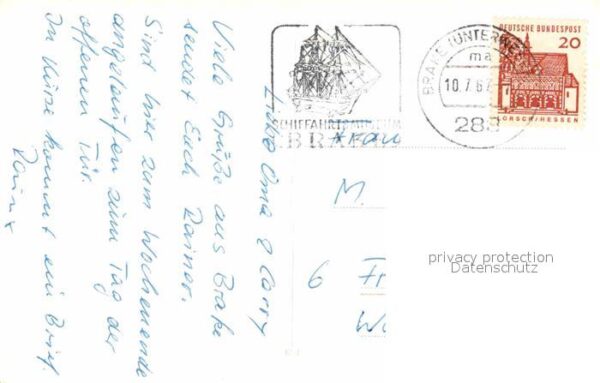 Liebe Oma & Carry
Viele Grüße aus Brake
sendet Euch Rainer.
Sind hier zum Wochenende
angelaufen zum Tag der
offenen Tür.
In Kürze kommt ein Brief.
Rainer
SCHIFFAHRTSMUSEUM
BRAKE
BRAKE (UNTERWESER)
ma
10.7.67
288
DEUTSCHE BUNDESPOST
20
LORSCH/HESSEN
Frau
M.
6 Fr
privacy protection
Datenschutz